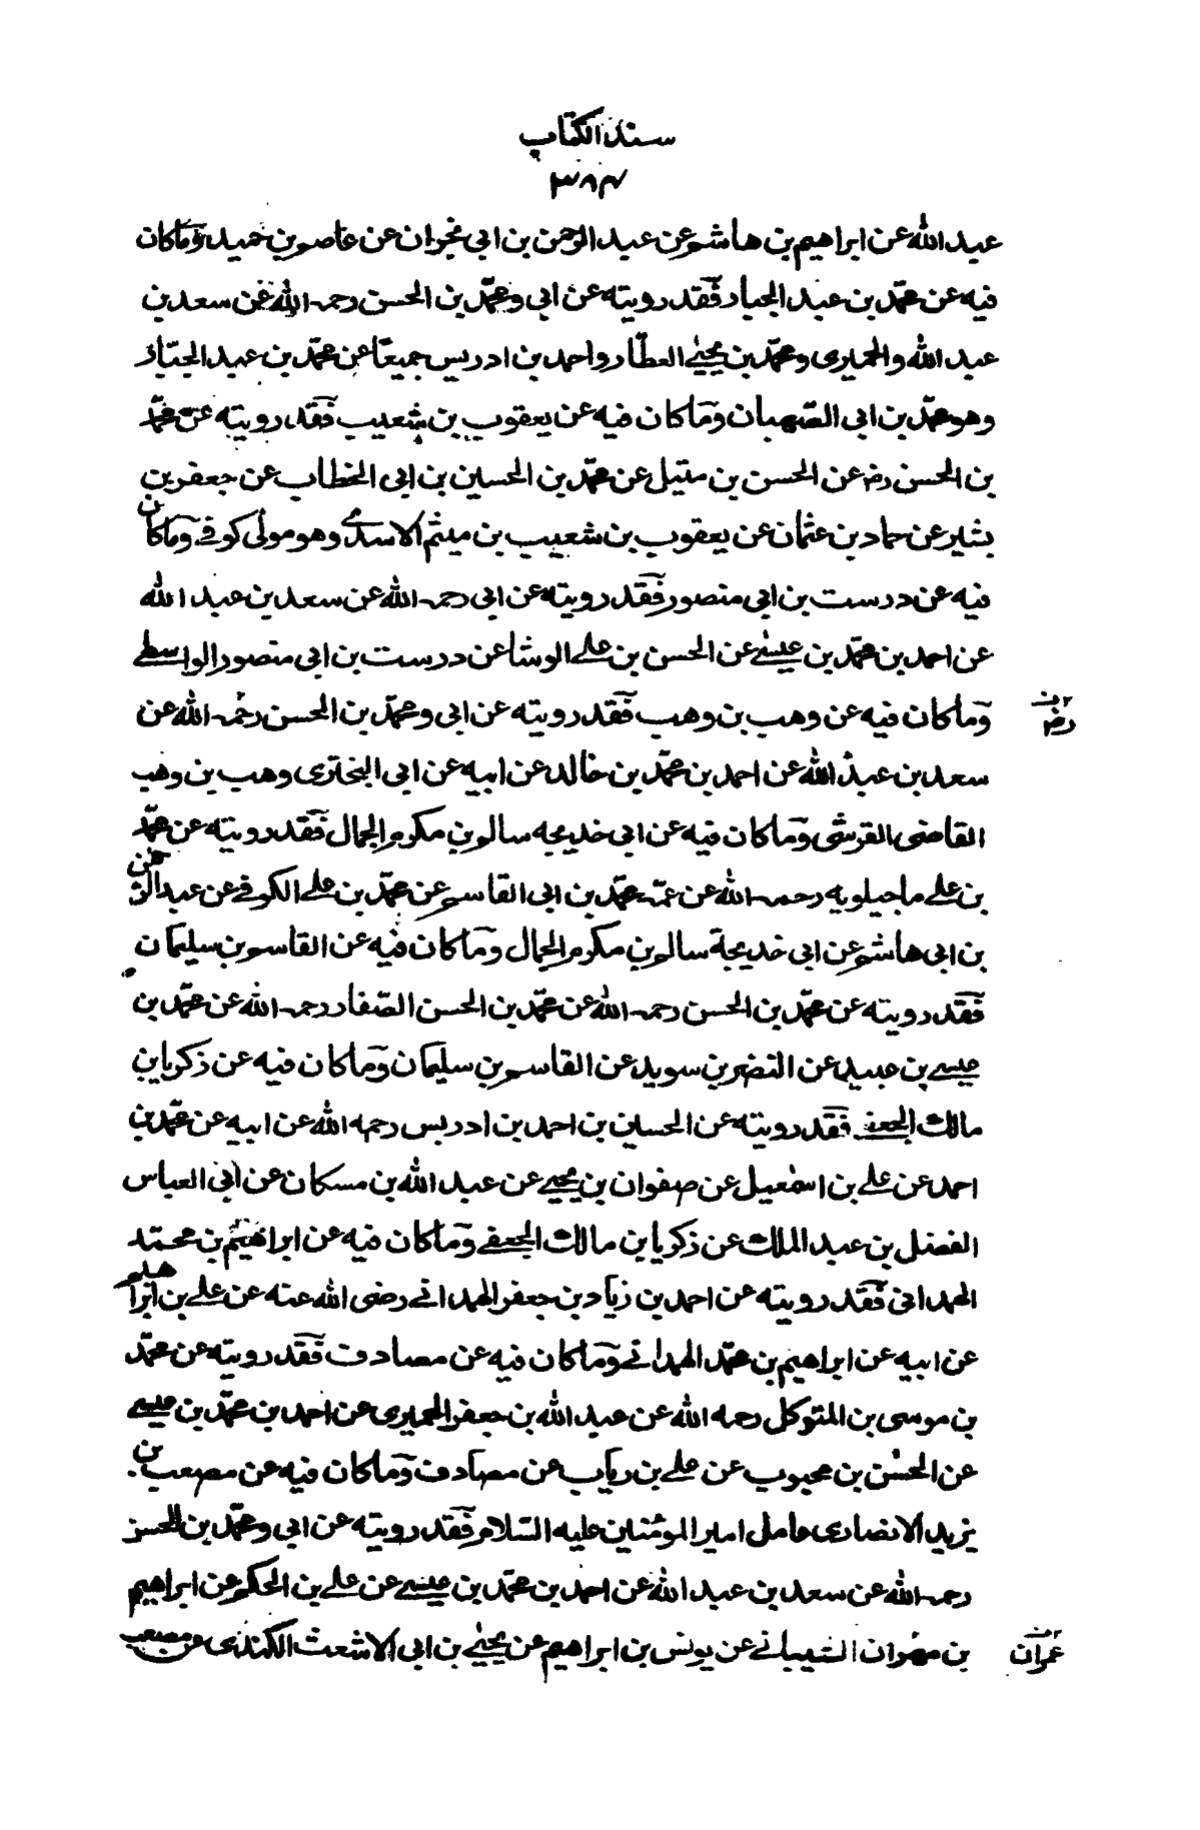 سند الكتاب
٣٨٤
عبد الله عن ابراهيم بن هاشم عن عبد الرحمن بن ابي نجران عن عاصم بن حميد وما كان
فيه عن محمّد بن عبد الجبار فقد رويته عن ابي ومحمّد بن الحسن رحمه الله عن سعد بن
عبد الله والحميرى ومحمّد بن يحيى العطّار واحمد بن ادريس جميعًا عن محمّد بن عبد الجبّار
وهو محمّد بن ابي الصّهبان وما كان فيه عن يعقوب بن شعيب فقد رويته عن محمّد
بن الحسن رضه عن الحسن بن متيل عن محمّد بن الحسين بن ابي الخطاب عن جعفر بن
بشير عن حماد بن عثمان عن يعقوب بن شعيب بن ميثم الاسدي وهو مولى كوفي وما كان
فيه عن درست بن ابي منصور فقد رويته عن ابي رحمه الله عن سعد بن عبد الله
عن احمد بن محمّد بن عيسى عن الحسن بن علي الوشا عن درست بن ابي منصور الواسطي
وما كان فيه عن وهب بن وهب فقد رويته عن ابي ومحمّد بن الحسن رحمه الله عن
رضه
سعد بن عبد الله عن احمد بن محمّد بن خالد عن ابيه عن ابي البختري وهب بن وهب
القاضى القرشى وما كان فيه عن ابي خديجه سالم بن مكرم الجمال فقد رويته عن محمّد
بن علي ماجيلويه رحمه الله عن عمّه محمّد بن ابي القاسم عن محمّد بن علي الكوفي عن عبد الرحمن
بن ابي هاشم عن ابي خديجة سالم بن مكرم الجمال وما كان فيه عن القاسم بن سليمان
فقد رويته عن محمّد بن الحسن رحمه الله عن محمّد بن الحسن الصّفار رحمه الله عن محمّد بن
عيسى بن عبيد عن النضر بن سويد عن القاسم بن سليمان وما كان فيه عن زكريا بن
مالك الجعفي فقد رويته عن الحسين بن احمد بن ادريس رحمه الله عن ابيه عن محمّد بن
احمد عن علي بن اسمعيل عن صفوان بن يحيى عن عبد الله بن مسكان عن ابي العباس
الفضل بن عبد الملك عن زكريا بن مالك الجعفي وما كان فيه عن ابراهيم بن محمّد
الهمداني فقد رويته عن احمد بن زياد بن جعفر الهمداني رضى الله عنه عن علي بن ابراهيم
عن ابيه عن ابراهيم بن محمّد الهمداني وما كان فيه عن مصادف فقد رويته عن محمّد
بن موسى بن المتوكل رحمه الله عن عبد الله بن جعفر الحميرى عن احمد بن محمّد بن عيسى
عن الحسن بن محبوب عن علي بن رياب عن مصادف وما كان فيه عن مصعب بن
يزيد الانصارى عامل امير المومنين عليه السّلام فقد رويته عن ابي ومحمّد بن الحسن
رحمه الله عن سعد بن عبد الله عن احمد بن محمّد بن عيسى عن علي بن الحكم عن ابراهيم
بن مهران الشيباني عن يونس بن ابراهيم عن يحيى بن ابي الاشعث الكندى عن مصعب
عمران